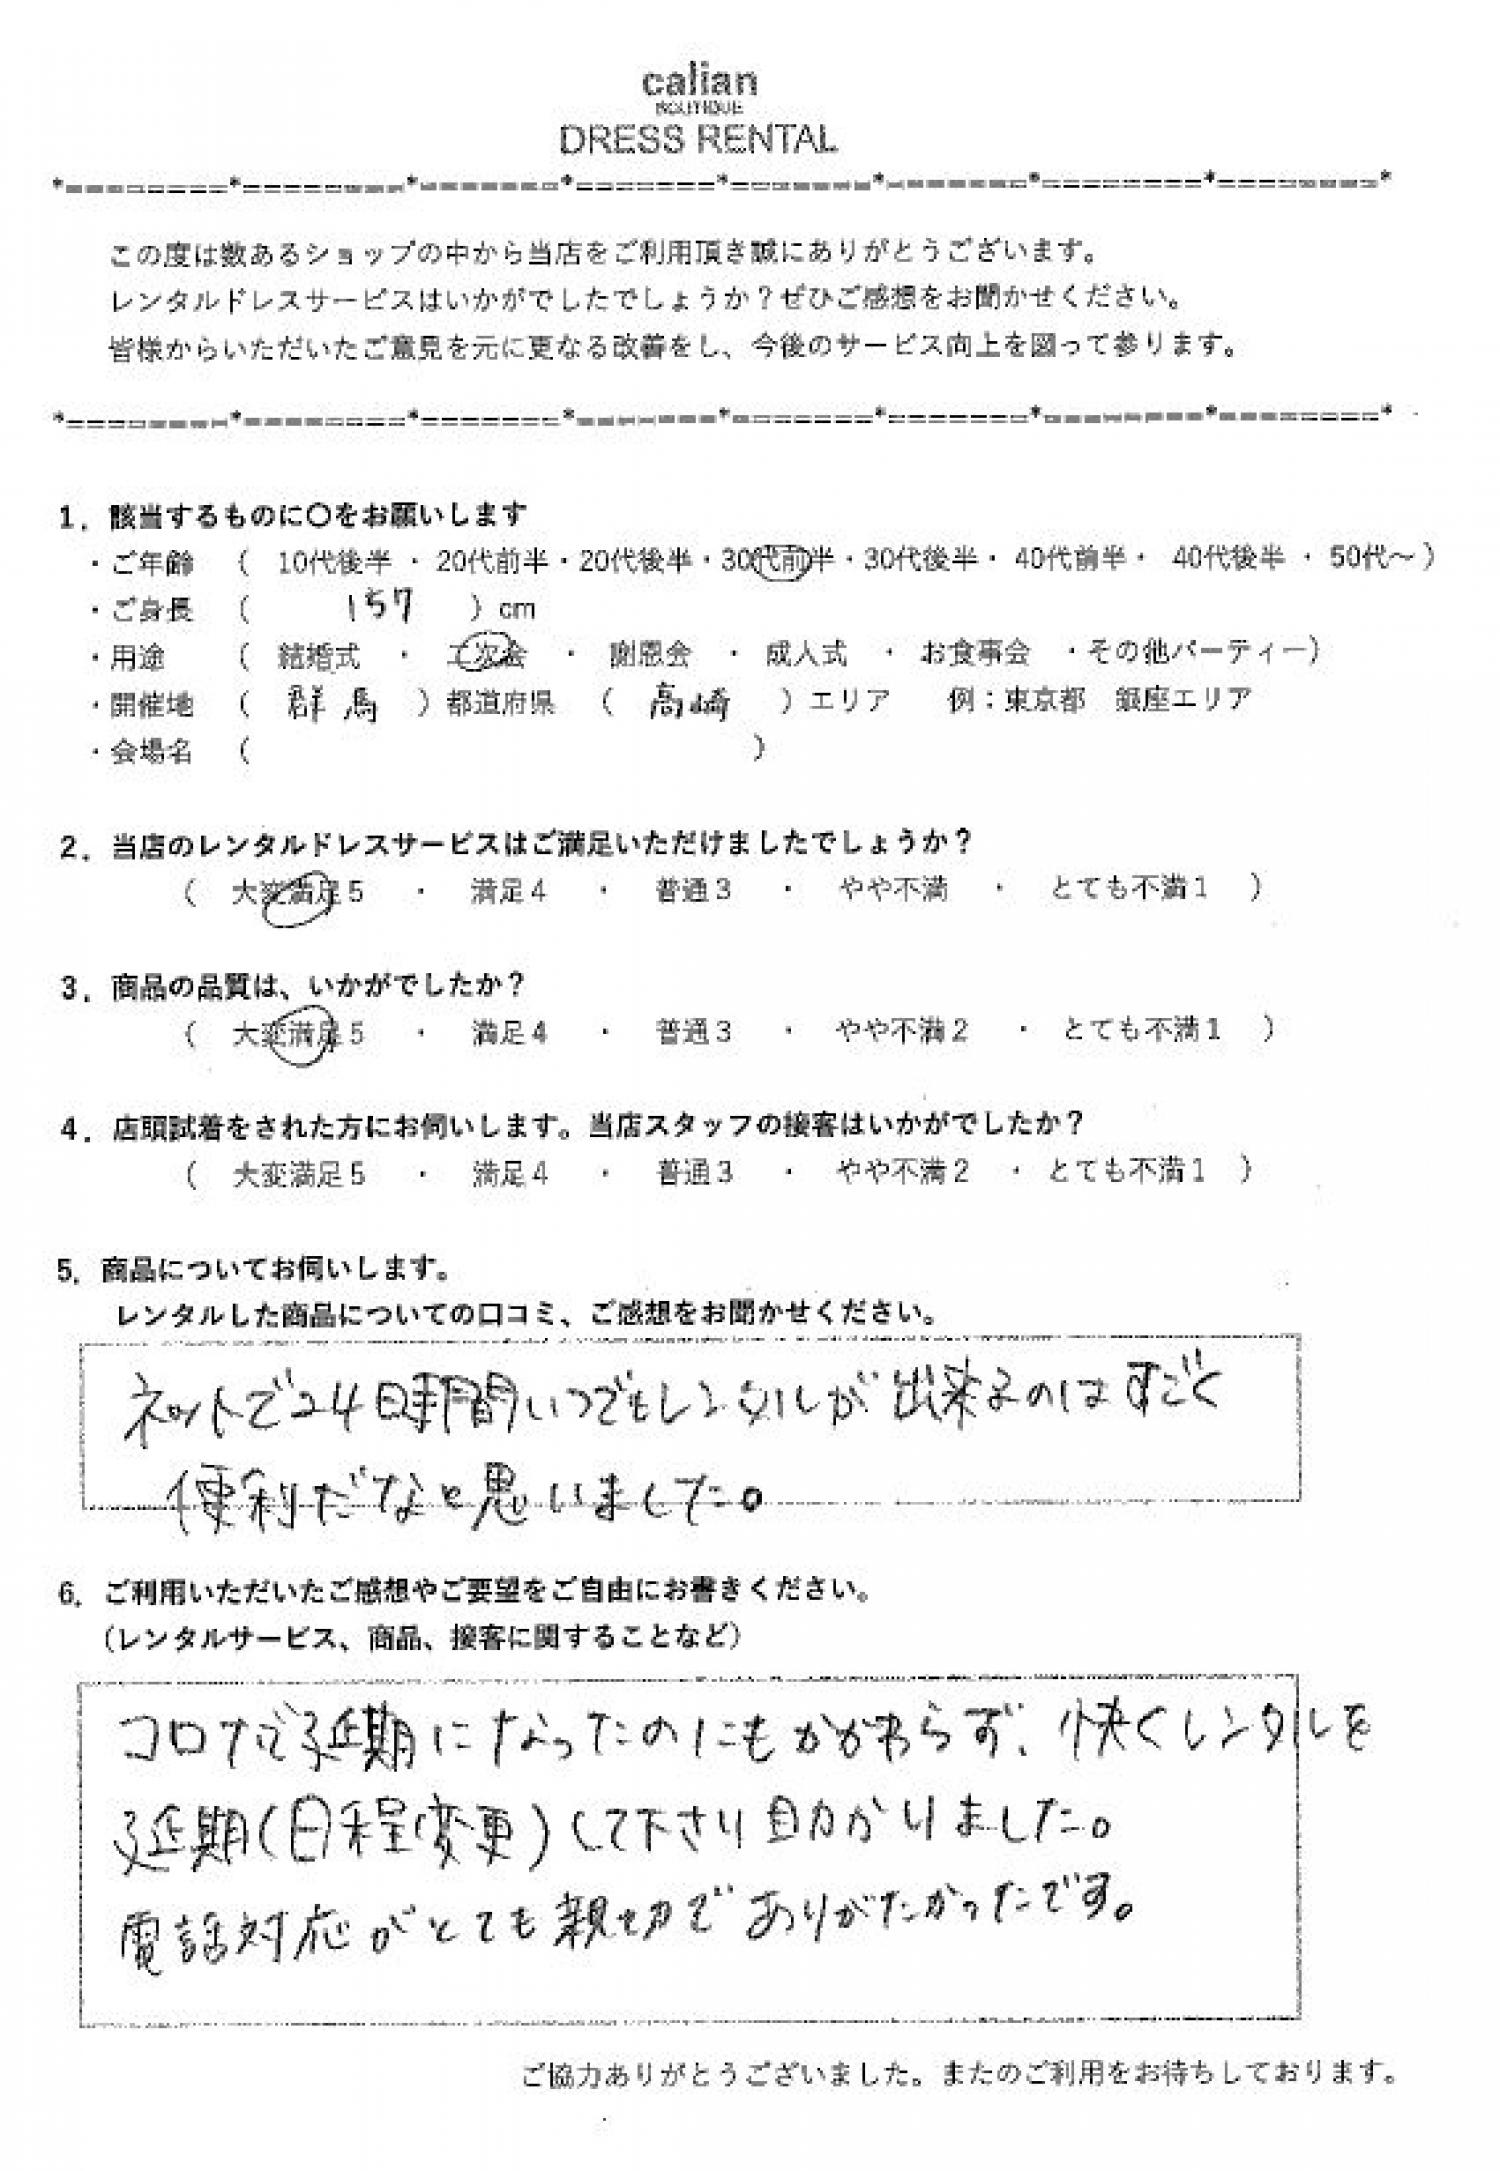 calian
BOUTIQUE
DRESS RENTAL
*========*========*=======*=======*=======*=======*========*========*
この度は数あるショップの中から当店をご利用頂き誠にありがとうございます。
レンタルドレスサービスはいかがでしたでしょうか？ぜひご感想をお聞かせください。
皆様からいただいたご意見を元に更なる改善をし、今後のサービス向上を図って参ります。
*========*========*=======*=======*=======*=======*========*========*
1．該当するものに〇をお願いします
・ご年齢 （ 10代後半 ・ 20代前半・20代後半・30代前半・30代後半・ 40代前半・ 40代後半 ・ 50代～）
・ご身長 （ 157 ）cm
・用途 （ 結婚式 ・ 二次会 ・ 謝恩会 ・ 成人式 ・ お食事会 ・その他パーティー）
・開催地 （ 群馬 ）都道府県 （ 高崎 ）エリア 例：東京都 銀座エリア
・会場名 （ ）
2．当店のレンタルドレスサービスはご満足いただけましたでしょうか？
（ 大変満足5 ・ 満足4 ・ 普通3 ・ やや不満 ・ とても不満1 ）
3．商品の品質は、いかがでしたか？
（ 大変満足5 ・ 満足4 ・ 普通3 ・ やや不満2 ・ とても不満1 ）
4．店頭試着をされた方にお伺いします。当店スタッフの接客はいかがでしたか？
（ 大変満足5 ・ 満足4 ・ 普通3 ・ やや不満2 ・ とても不満1 ）
5．商品についてお伺いします。
レンタルした商品についての口コミ、ご感想をお聞かせください。
ネットで24時間いつでもレンタルが出来るのはすごく
便利だなと思いました。
6．ご利用いただいたご感想やご要望をご自由にお書きください。
（レンタルサービス、商品、接客に関することなど）
コロナで延期になったのにもかかわらず、快くレンタルを
延期(日程変更)して下さり助かりました。
電話対応がとても親切でありがたかったです。
ご協力ありがとうございました。またのご利用をお待ちしております。